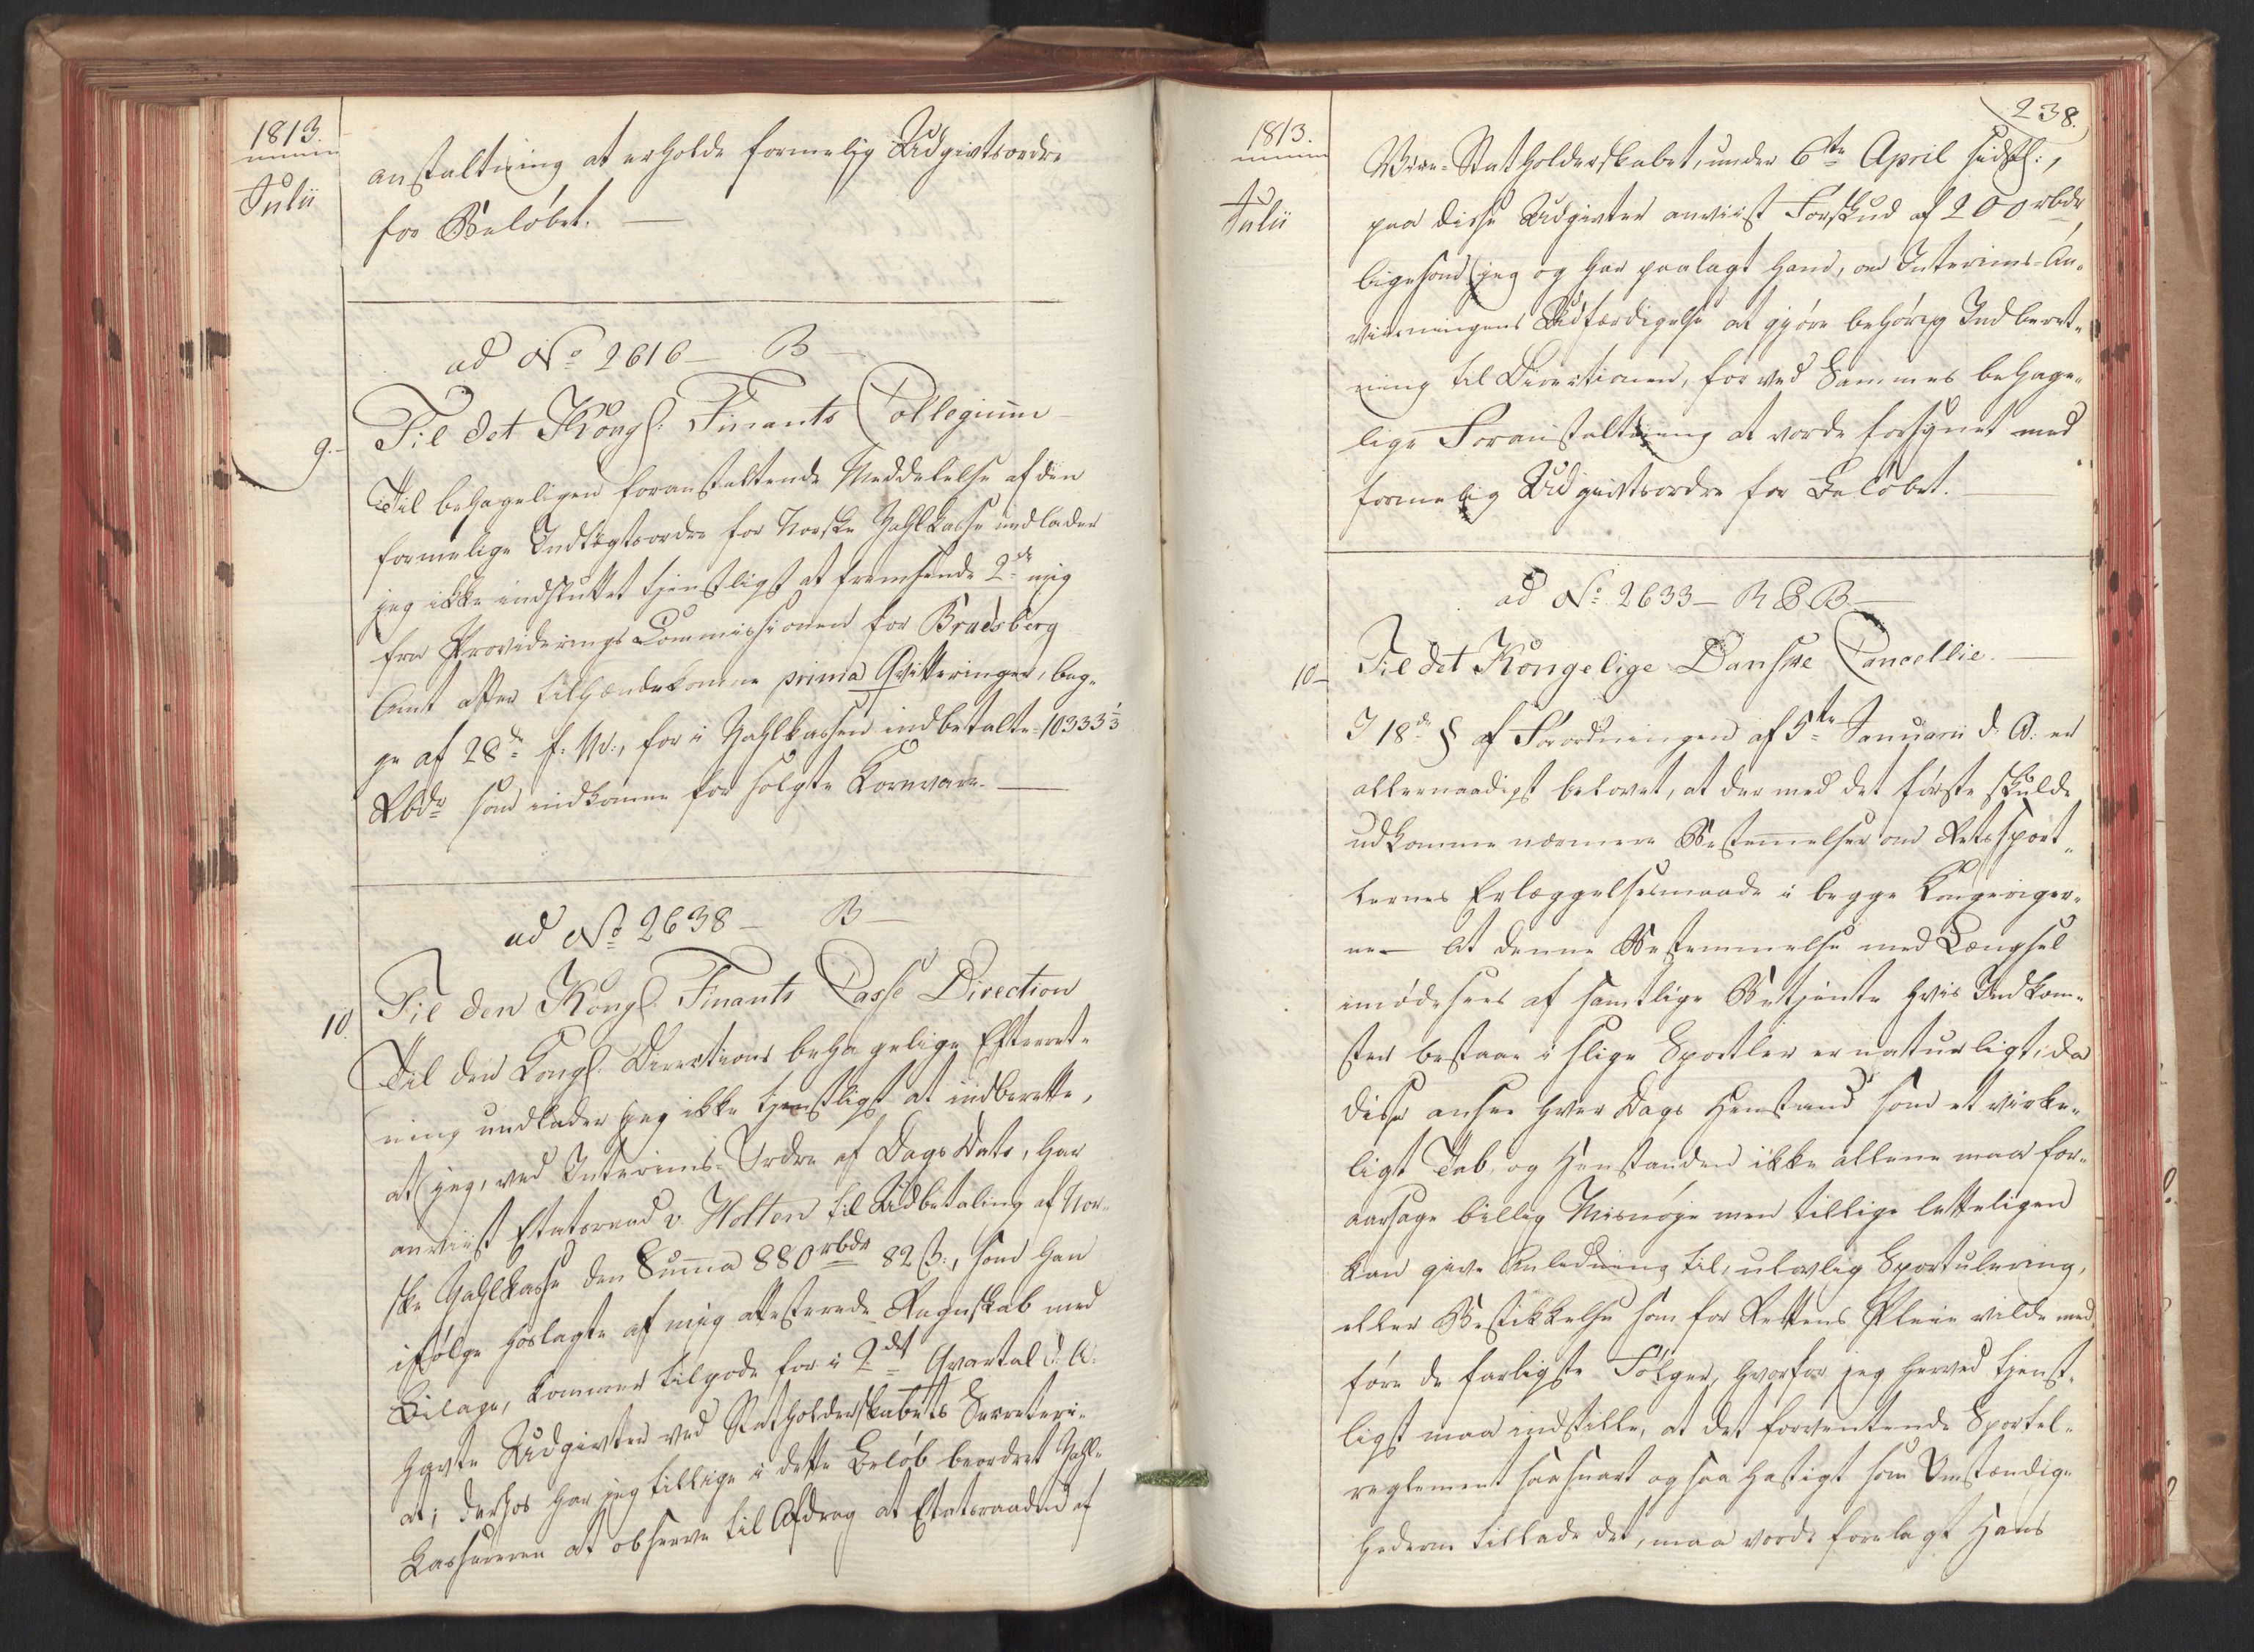 1813.
Julii
anstaltning at erholde formelig Udgivtsordre
for Beløbet. —
ad No 2616 — B —
9. — Til det Kongl: Finants Collegium —
Til behageligen foranstaltende Meddelelse af den
formelige Indtægtsordre for Norske Zahlkasse undlader
jeg ikke indsluttet tjenstligst at fremsende 2de mig
fra Provideringscommissionen for Bradsberg
Amt atter tilhændekomne prima Qvitteringer, beg-
ge af 28de f. M:, for i Zahlkassen indbetalte 10333⅓
Rbdr som indkomne for solgte Kornvare. —
ad No 2638 — B —
10. Til den Kongl. Finants Casse Direction
Til den Kongl. Directions behagelige Efterret-
ning undlader jeg ikke tjenstligst at indberette,
at jeg, ved Interims-Ordre af Dags Dato, har
anviist Etatsraad v. Holten til Udbetaling af Nor-
ske Zahlkasse den Summa 880 rbdr 82 ß:, som han
ifølge hoslagte af mig attesterede Regnskab med
Bilage, kommer tilgode for i 2det Qvartal d: A:
havte Udgivter ved Statholderskabets Secreteri-
at; derhos har jeg tillige i dette Beløb beordret Zahl-
kassereren at observe til Afdrag at Etatsraaden af
238.
1813.
Julii
Vice-Statholderskabet, under 6te April sidstl:,
paa disse Udgivter anviist Forskud af 200 rbdr,
ligesom jeg og har paalagt ham, om Interims-An-
viisningens Udfærdigelse at gjøre behørig Indberet-
ning til Directionen, for ved Sammes behage-
lige Foranstaltning at vorde forsynet med
formelig Udgivtsordre for Beløbet. —
ad No 2633 — R & B —
10 — Til det Kongelige Danske Cancellie. —
I 18de § af Forordningen af 5te Januarii d: A: er
allernaadigst belovet, at der med det første skulde
udkomme nærmere Bestemmelser om Retssport-
lernes Erlæggelsesmaade i begge Kongeriger-
ne — At denne Bestemmelse med Længsel
imødesees af samtlige Betjente hvis Indkom-
ster bestaae i slige Sportler er naturligt, da
disse ansee hver Dags Henstand som et virke-
ligt Tab, og Henstanden ikke allene maa for-
aarsage billig Misnøje men tillige letteligen
kan give Anledning til, ulovlig Sportulering,
eller Bestikkelse som for Rettens Pleie vilde med-
føre de farligste Følger, hvorfor jeg herved tjenst-
ligst maa indstille, at det forventende Sportel-
reglement saasnart og saa hastigt som Omstændig-
hederne tillade det, maa vorde forelagt Hans